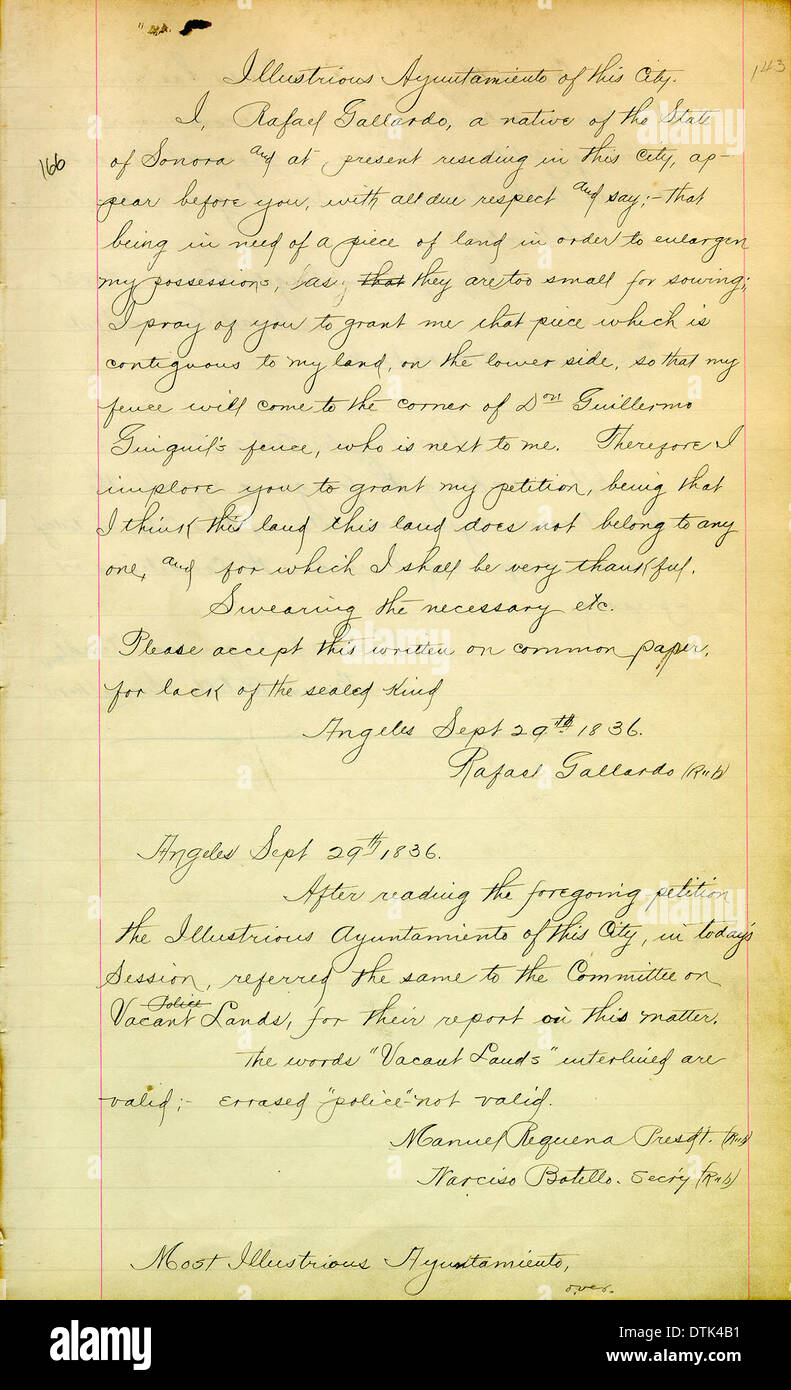 143
Illustrious Ayuntamiento of this City.
I, Rafael Gallardo, a native of the State
166
of Sonora and at present residing in this city, ap-
pear before you, with all due respect and say;- that
being in need of a piece of land in order to enlargen
my possessions, (as, that they are too small for sowing;
I pray of you to grant me that piece which is
contiguous to my land, on the lower side, so that my
fence will come to the corner of Don Guillermo
Guiguil's fence, who is next to me. Therefore I
implore you to grant my petition, being that
I think this land this land does not belong to any
one, and for which I shall be very thankful.
Swearing the necessary etc.
Please accept this written on common paper,
for lack of the sealed kind
Angeles Sept 29th 1836.
Rafael Gallardo (Rub)
Angeles Sept 29th 1836.
After reading the foregoing petition
the Illustrious Ayuntamiento of this City, in today's
Session, referred the same to the Committee on
Police
Vacant Lands, for their report on this matter.
The words "Vacant Lands" interlined are
valid;- errased "police" not valid.
Manuel Requena Presdt. (Rub)
Narciso Botello. Secry (Rub)
Most Illustrious Ayuntamiento,
over.
alamy
Image ID: DTK4B1
www.alamy.com